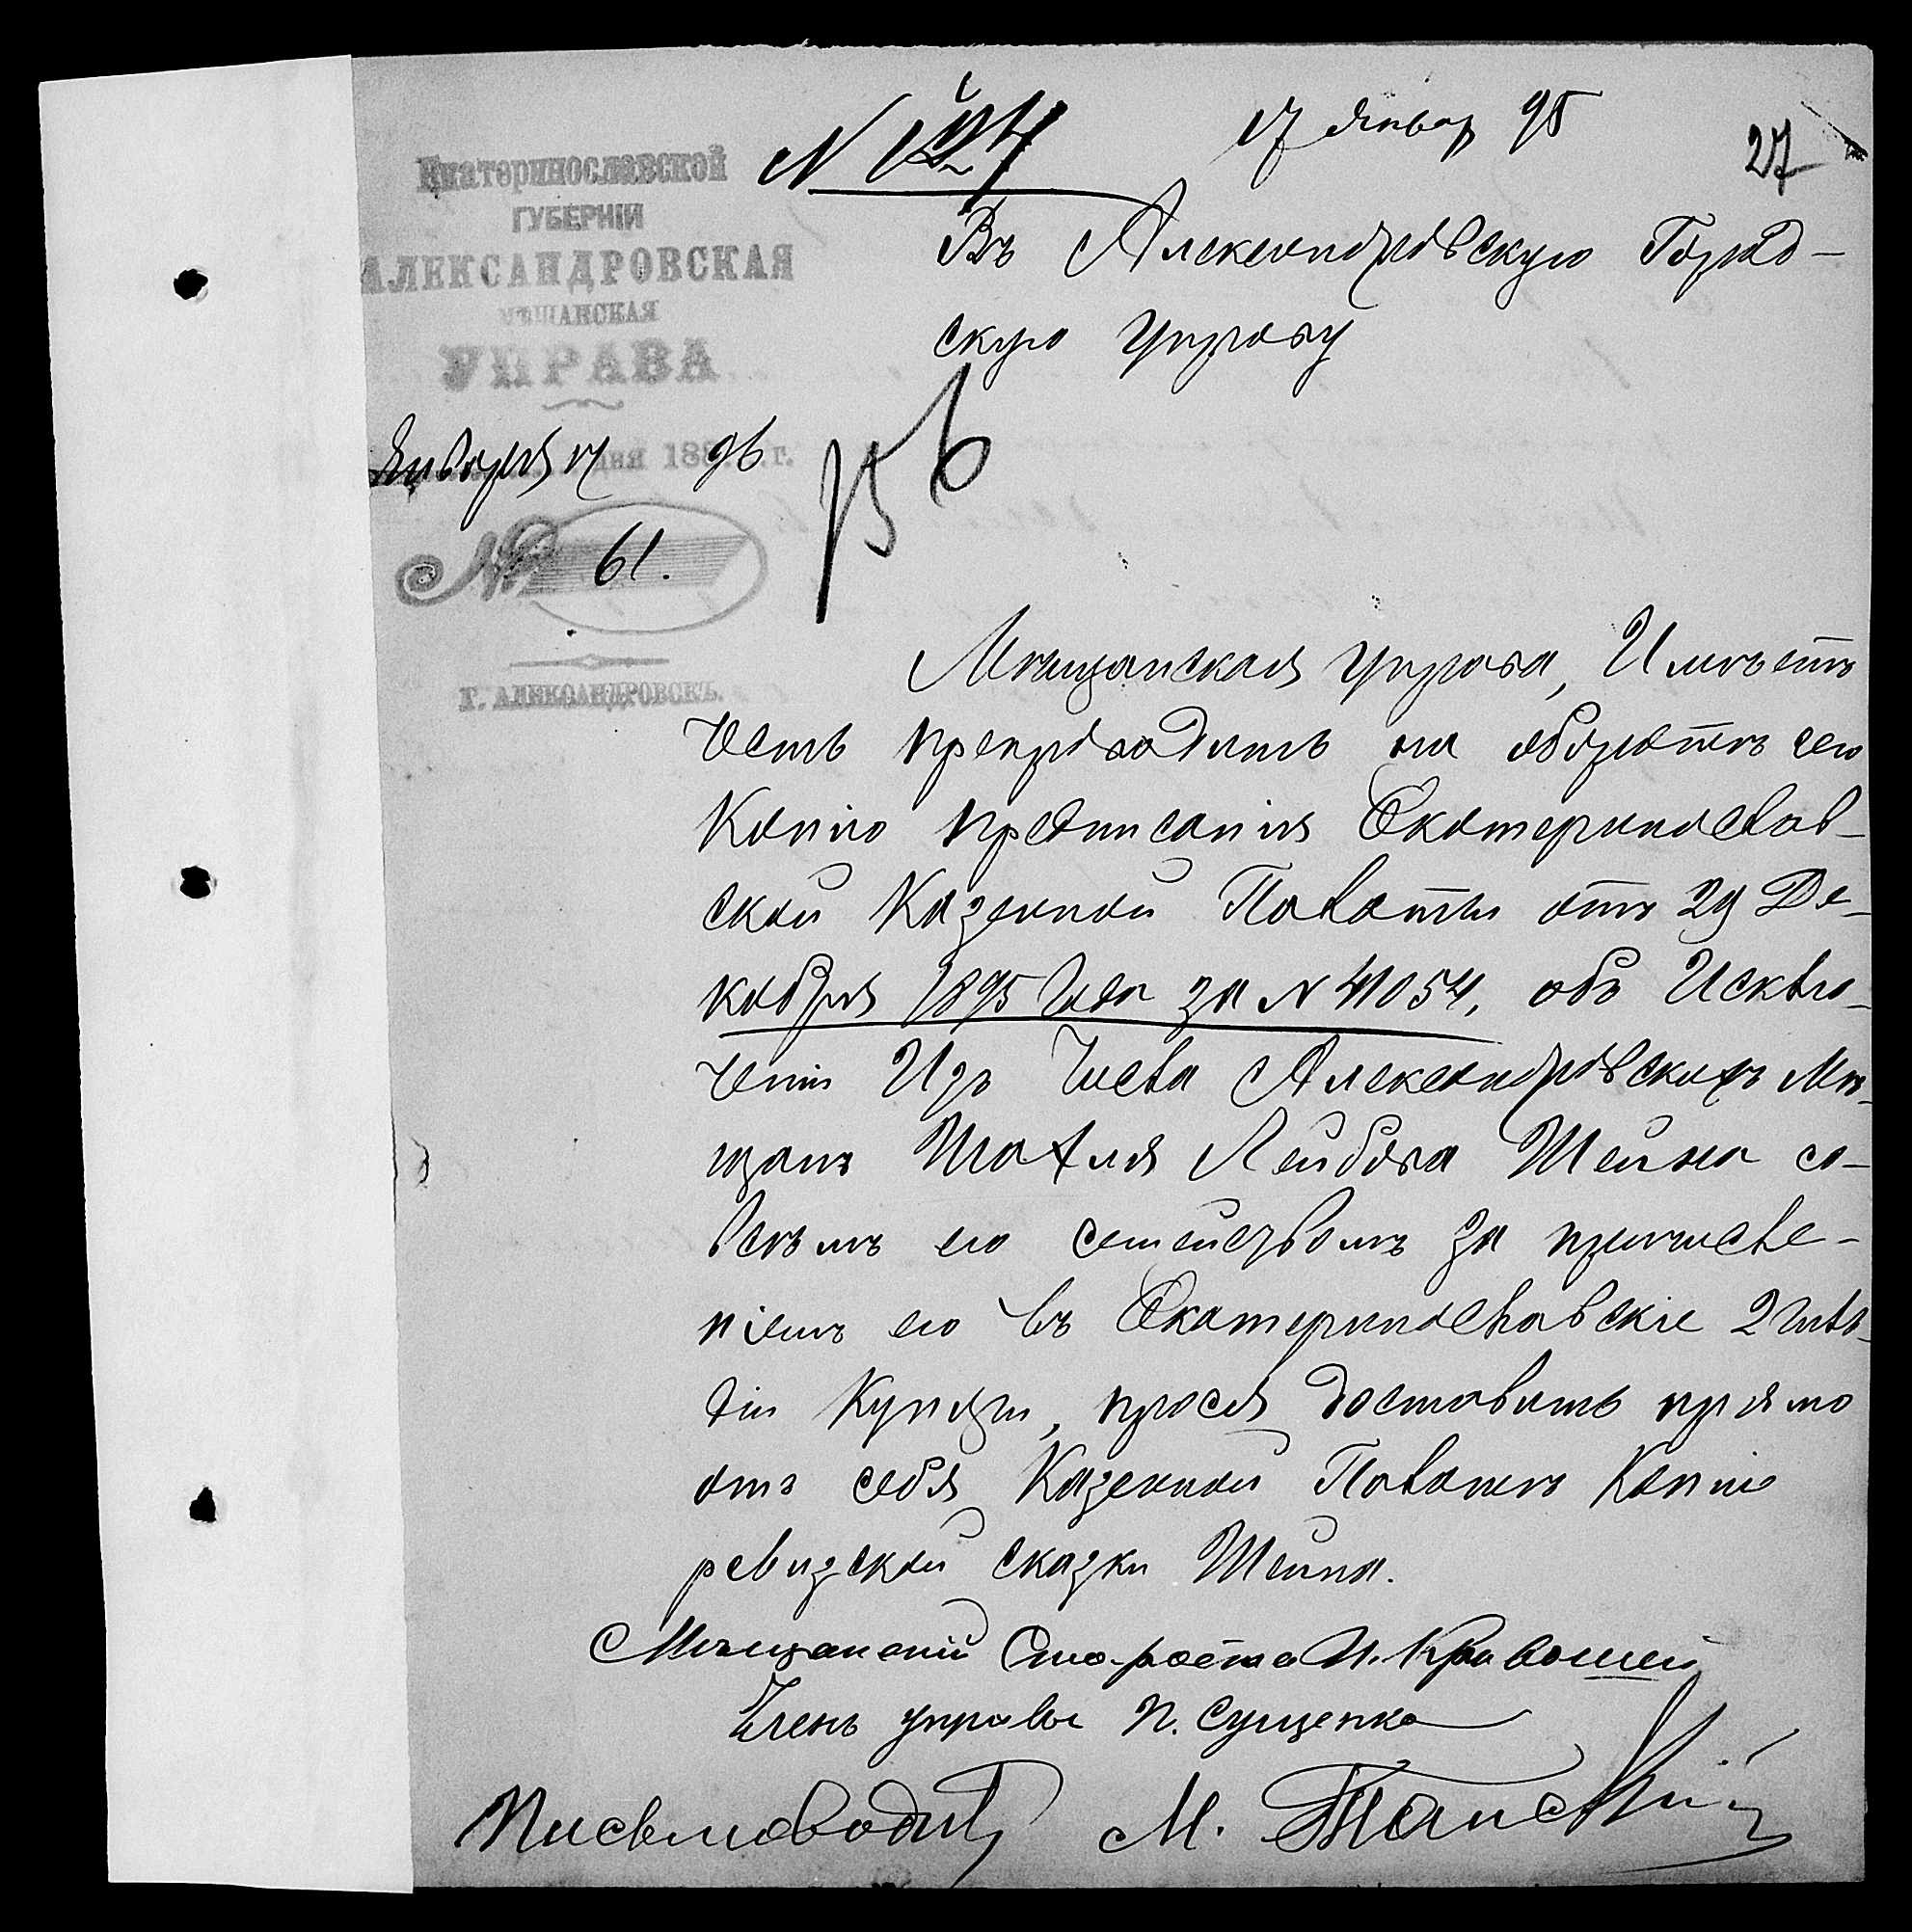 17 Январ 95
27
Екатеринославской
ГУБЕРНІИ
АЛЕКСАНДРОВСКАЯ
МѢЩАНСКАЯ
УПРАВА
Января 17 дня 1896 г.
№ 61.
Г. АЛЕКСАНДРОВСКЪ.
Въ Александровскую Город-
скую Управу
Мѣщанская управа, Имѣетъ
честь препроводить на оборотѣ сего
Копію предписанія Екатеринослав-
ской Казенной Палаты отъ 29 Де-
кабря 1895 года за N 41054, объ Исклю-
чении Изъ числа Александровскихъ Мѣ-
щанъ Лейбова Шейна со
всѣмъ его семействомъ за причисле-
ніемъ его въ Екатеринославскіе 2 гиль-
діи Купцы, прося доставить прямо
отъ себя Казенной Палатѣ Копію
ревизской сказки Шейна.
Мѣщанскій Староста И. Кравошей
Членъ управы П. Сущенко
Письмоводит М.